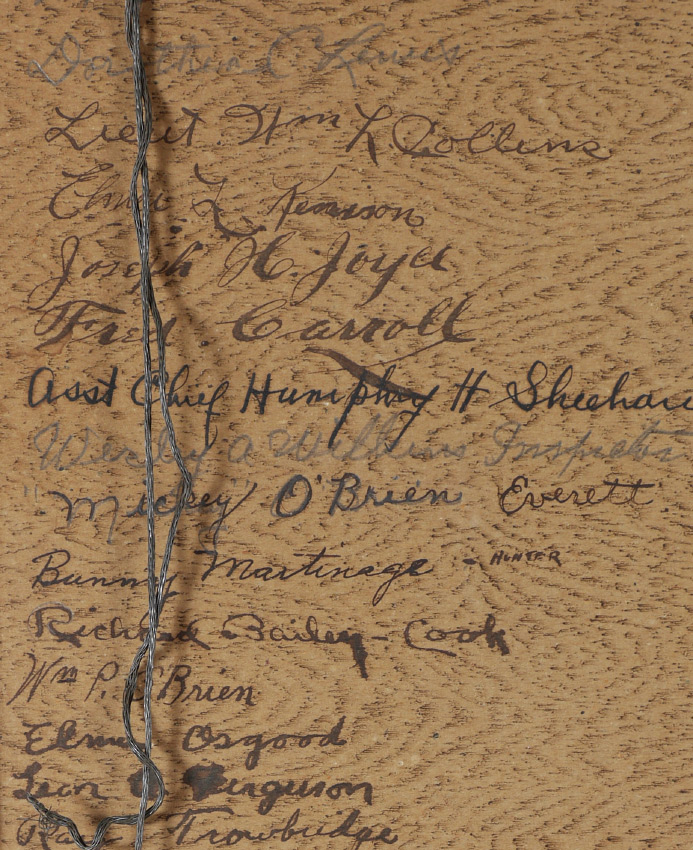 Dorothea C Lewis
Lieut Wm L Collins
Elmer L.
Joseph H. Joyce
Fred. Carroll
Asst Chief Humphry H Sheehan
Wesley A Wilkins Inspector
"Mickey" O'Brien Everett
Bunny Martinage - HUNTER
Richard Bailey - Cook
Wm P. O'Brien
Elmer Osgood
Leon Ferguson
Trowbridge